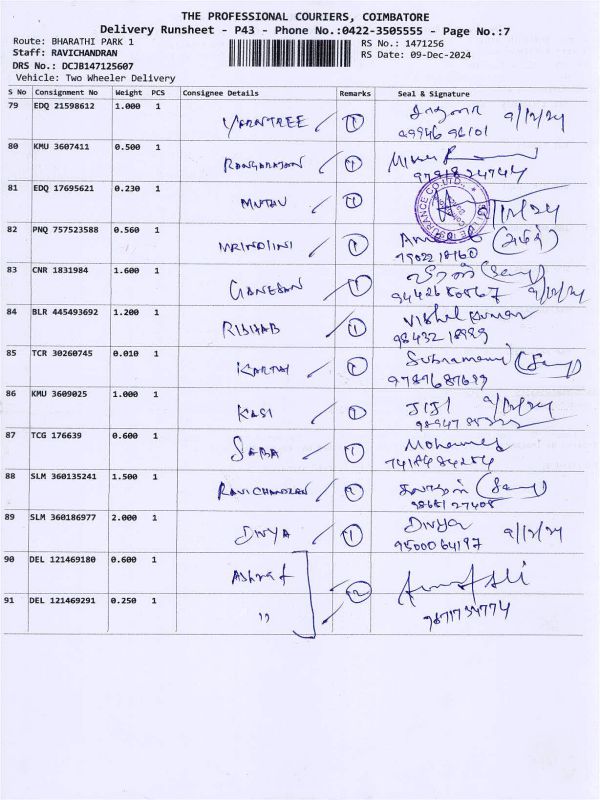 THE PROFESSIONAL COURIERS, COIMBATORE
Delivery Runsheet - P43 - Phone No.:0422-3505555 - Page No.:7
Route: BHARATHI PARK 1
RS No.: 1471256
Staff: RAVICHANDRAN
RS Date: 09-Dec-2024
DRS No.: DCJB147125607
Vehicle: Two Wheeler Delivery
S No Consignment No Weight PCS Consignee Details Remarks Seal & Signature
79 EDQ 21598612 1.000 1 1 9/12/24
99946 96101
80 KMU 3607411 0.500 1 RANGARAJAN 1
9791824744
81 EDQ 17695621 0.230 1 MUTHU 1 /12/24
82 PNQ 757523588 0.560 1 MRINDLINI 1
83 CNR 1831984 1.600 1 GANESAN 1
9442680567 9/12/24
84 BLR 445493692 1.200 1 RISHAB 1 Vishal Kumar
98432 18989
85 TCR 30260745 0.010 1 KARTHI 1
9789687699
86 KMU 3609025 1.000 1 KASI 1 JIJI 9/12/24
87 TCG 176639 0.600 1 SABA 1 Mohamed
7418484254
88 SLM 360135241 1.500 1 RAVICHANDRAN
98651 27408
89 SLM 360186977 2.000 1 DIVYA 1 Divya
9500064197 9/12/24
90 DEL 121469180 0.600 1 Ashraf 2
91 DEL 121469291 0.250 1 "
9871734774